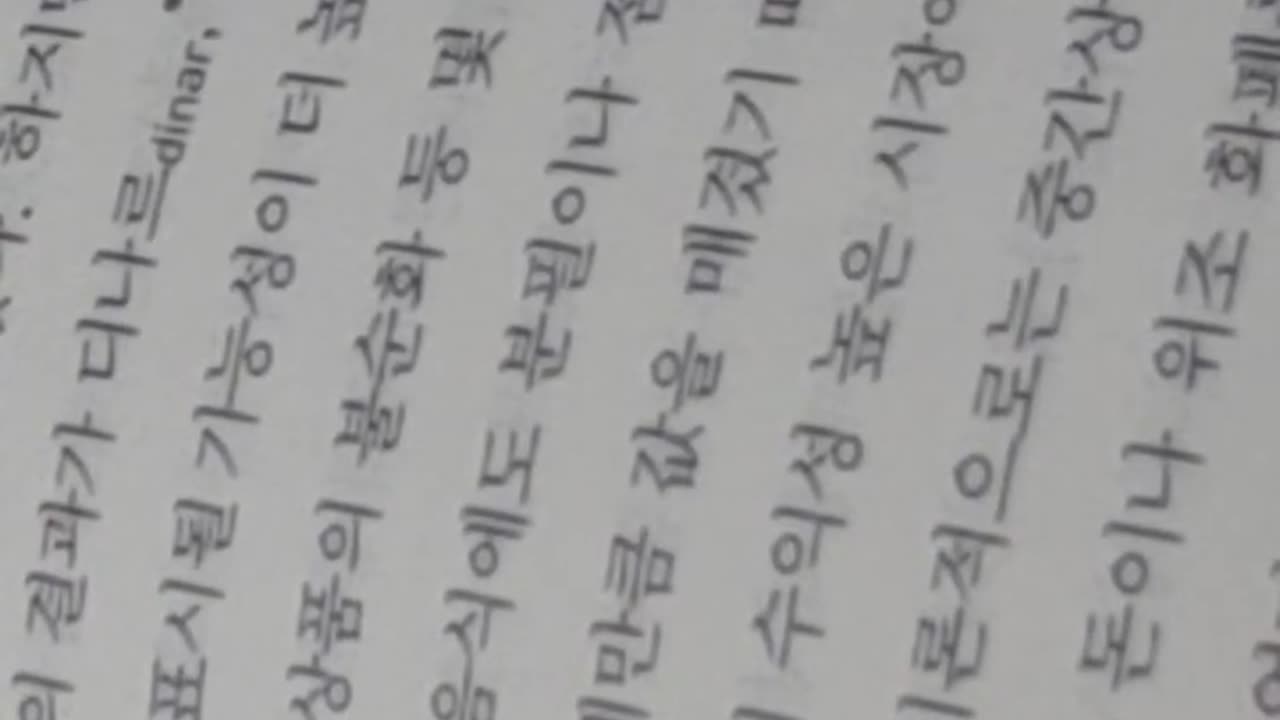 하지
의 결과가 디나르dinar,
표시될 가능성이 더
상품의 불순화 등 및
음식에도 분필이나
만큼 값을 매겼기
수의성 높은 시장
론적으로는 중간상
돈이나 위조 화폐